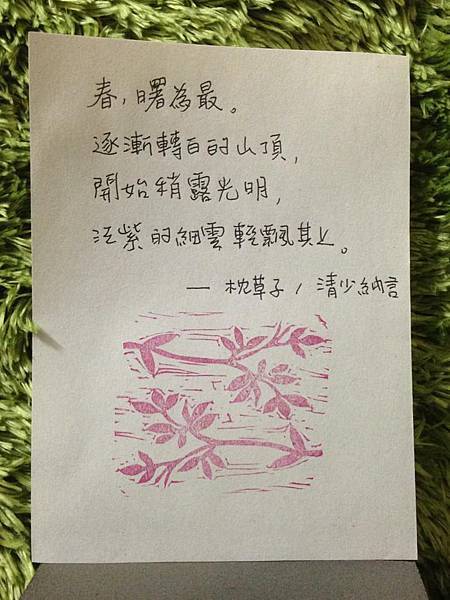 春，曙為最。
逐漸轉白的山頂，
開始稍露光明，
泛紫的細雲輕飄其上。
— 枕草子 / 清少納言